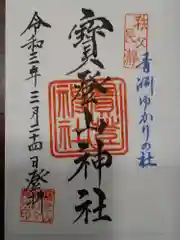 秩父
長瀞
青淵ゆかりの社
寳登山神社
令和三年三月二十四日登拝